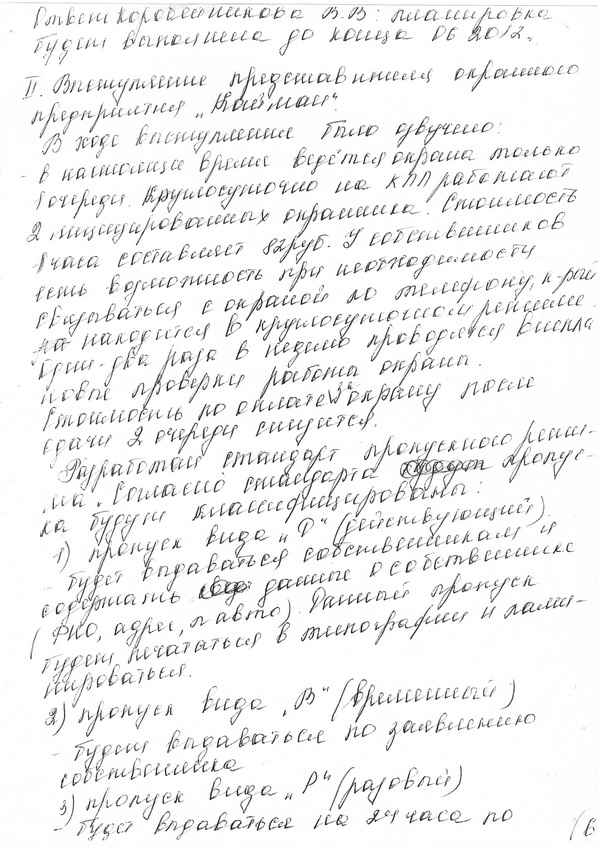 Ответ Коробейникова В.В: планировка
будет выполнена до конца 06 2012г.
II. Выступление представителя охранного
предприятия „Кайман".
В ходе выступления было озвучено:
- в настоящее время ведётся охрана только
1 очереди. Круглосуточно на КПП работают
2 лицензированных охранника. Стоимость
1 часа составляет 82 руб. У собственников
есть возможность при необходимости
связываться с охраной по телефону, к-рый
находится в круглосуточном режиме.
Один-два раза в неделю проводятся внепла
новые проверки работы охраны.
Стоимость по оплате за охрану после
сдачи 2 очереди снизится.
Разработан стандарт пропускного режи-
ма. Согласно стандарта пропус-
ка будут классифицированы:
1) пропуск вида „Д" (действующий).
- будет выдаваться собственникам и
содержать данные о собственнике
(ФИО, адрес, № авто). Данный пропуск
будет печататься в типографии и лами-
нироваться.
2) пропуск вида „В" (временный)
- будет выдаваться по заявлению
собственника
3) пропуск вида „Р" (разовый)
- будет выдаваться на 24 часа по